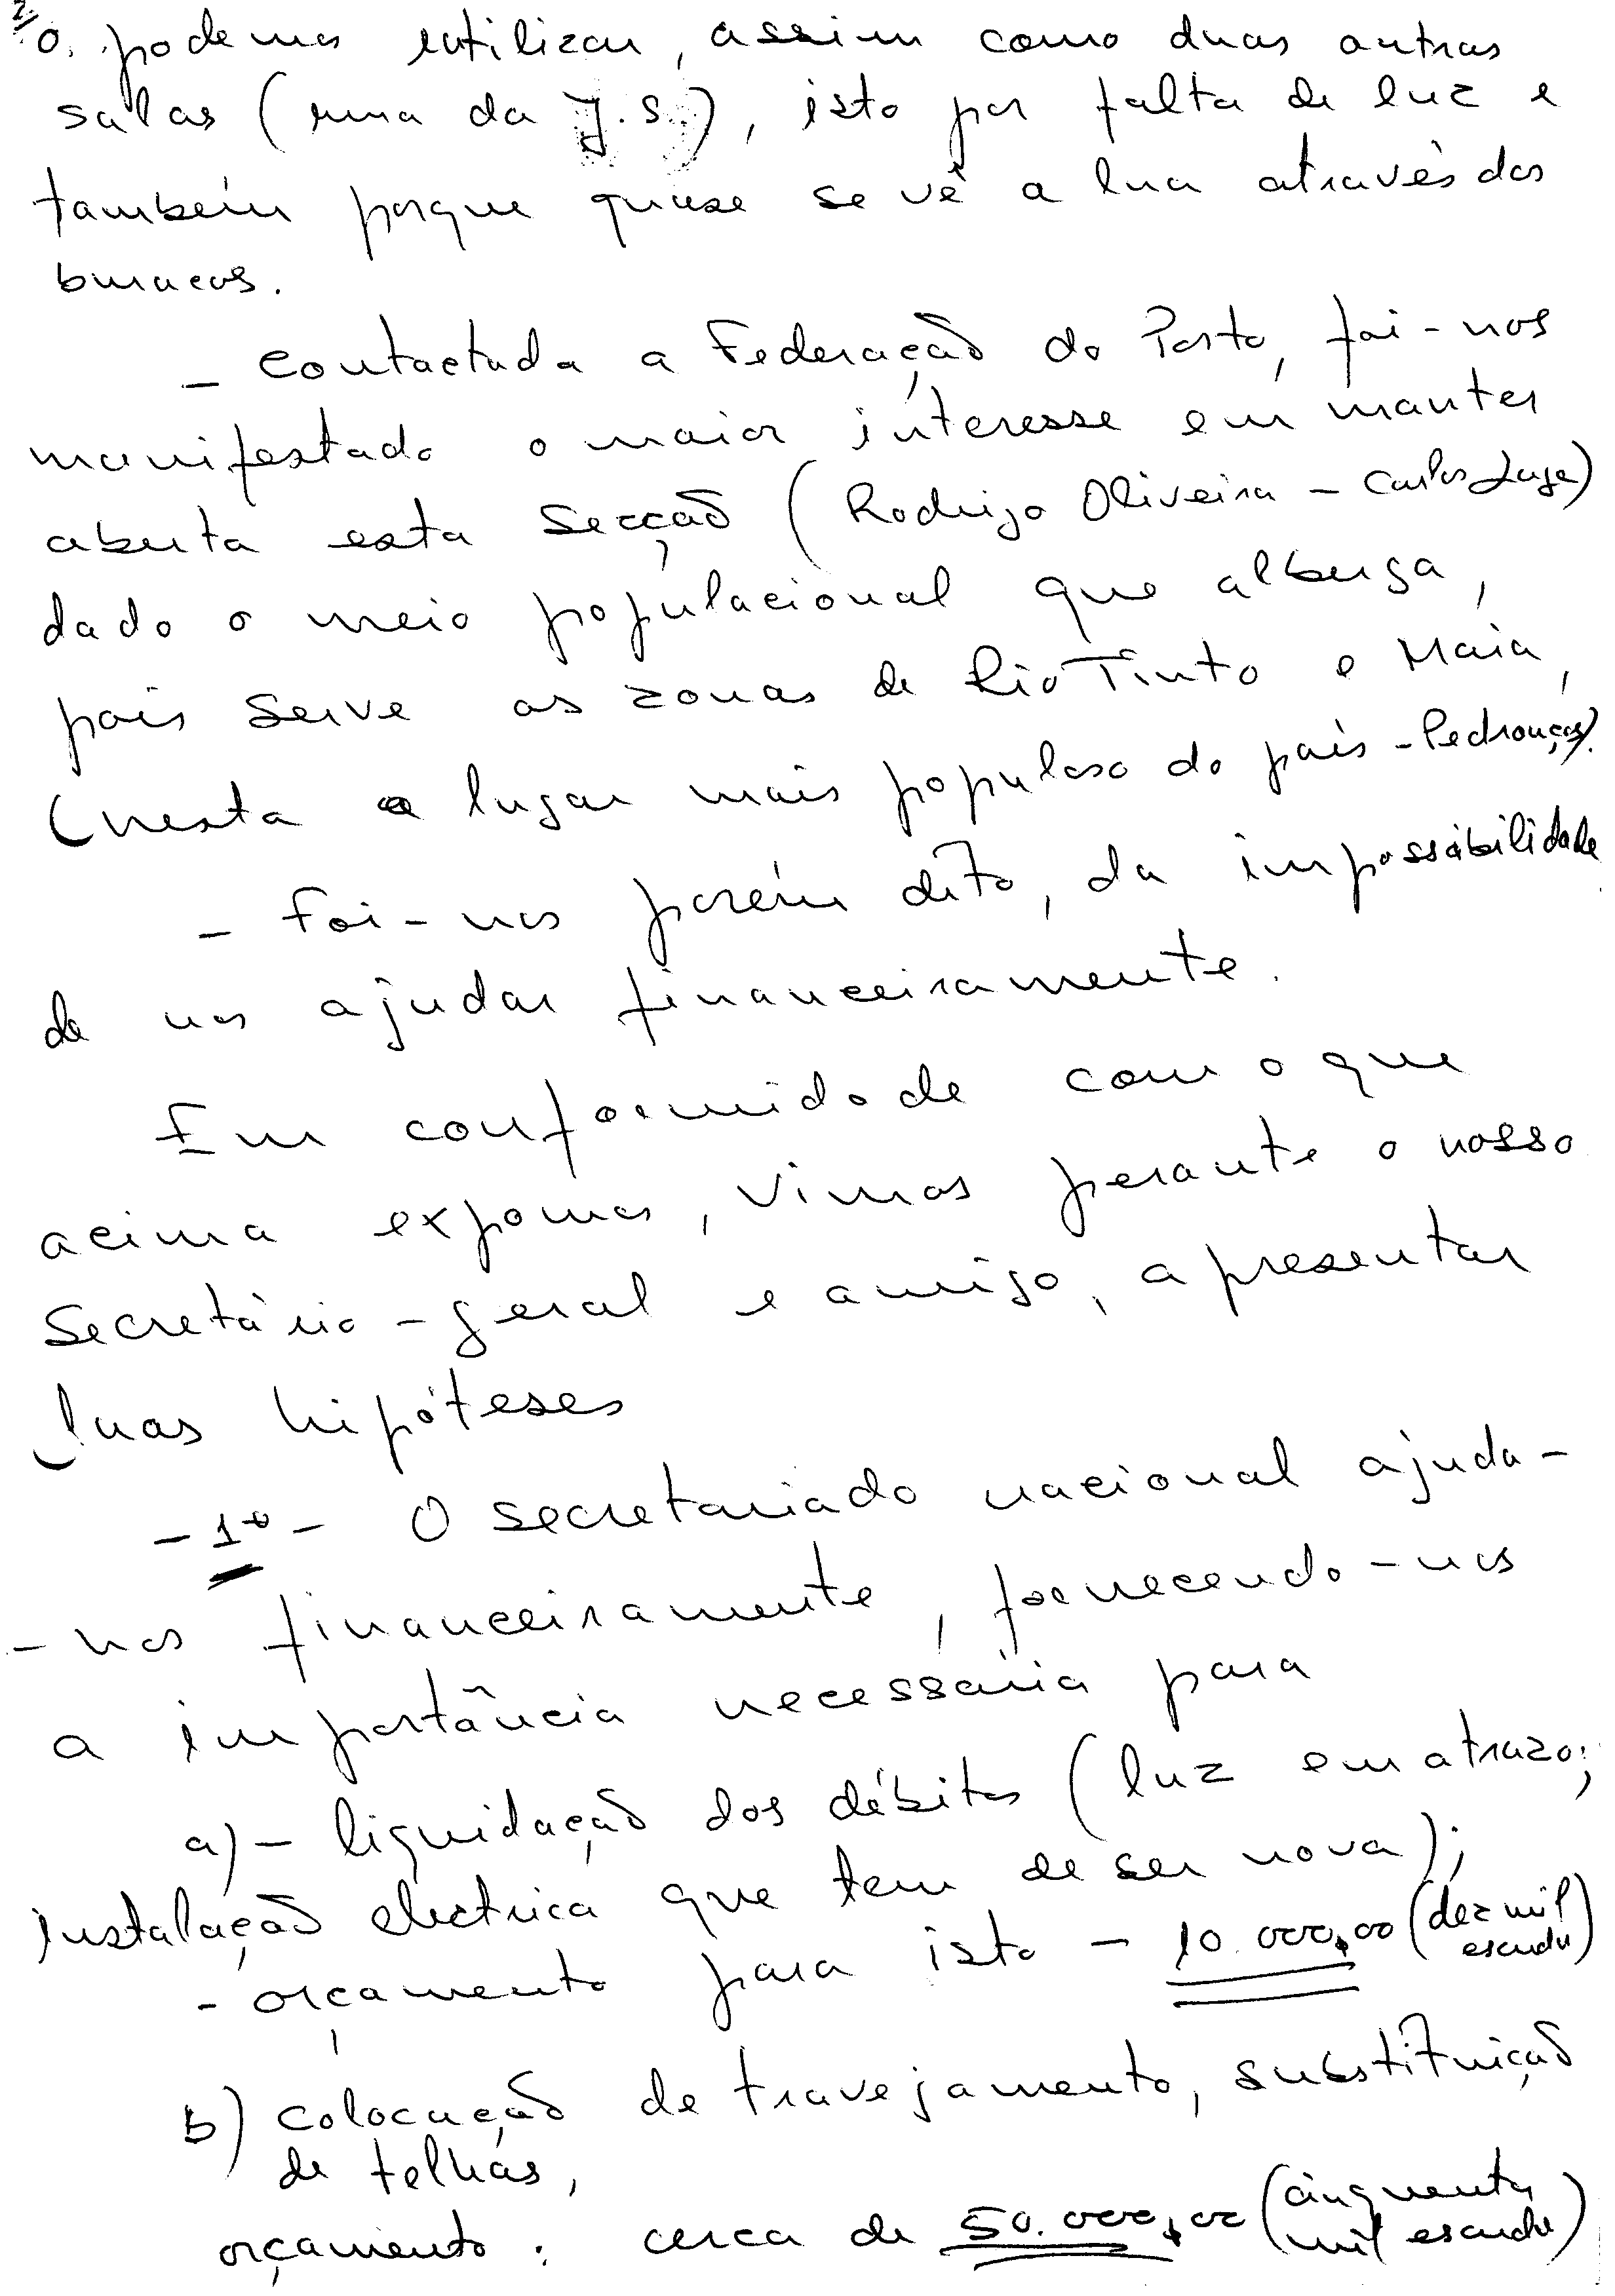 2.
o. podemos utilizar, assim como duas outras
salas (uma da J.S.), isto por falta de luz e
também porque quase se vê a lua através dos
buracos.
- Contactada a Federação do Porto, foi-nos
manifestado o maior interesse em manter
aberta esta Secção (Rodrigo Oliveira - Carlos Lage)
dado o meio populacional que alberga,
pois serve as zonas de Rio Tinto e Maia,
(nesta o lugar mais populoso do país - Pedrouços).
- Foi-nos porém dito, da impossibilidade
de nos ajudar financeiramente.
Em conformidade com o que
acima expomos, vimos perante o nosso
Secretário-geral e amigo, apresentar
duas hipóteses
- 1ª - O secretariado nacional ajuda-
-nos financeiramente, fornecendo-nos
a importância necessária para
a) - liquidação dos débitos (luz em atrazo;
instalação eléctrica que tem de ser nova);
- orçamento para isto - 10.000,00 (dez mil
escudos)
b) colocação de travejamento, substituição
de telhas,
orçamento: cerca de 50.000,00 (cinquenta
mil escudos)